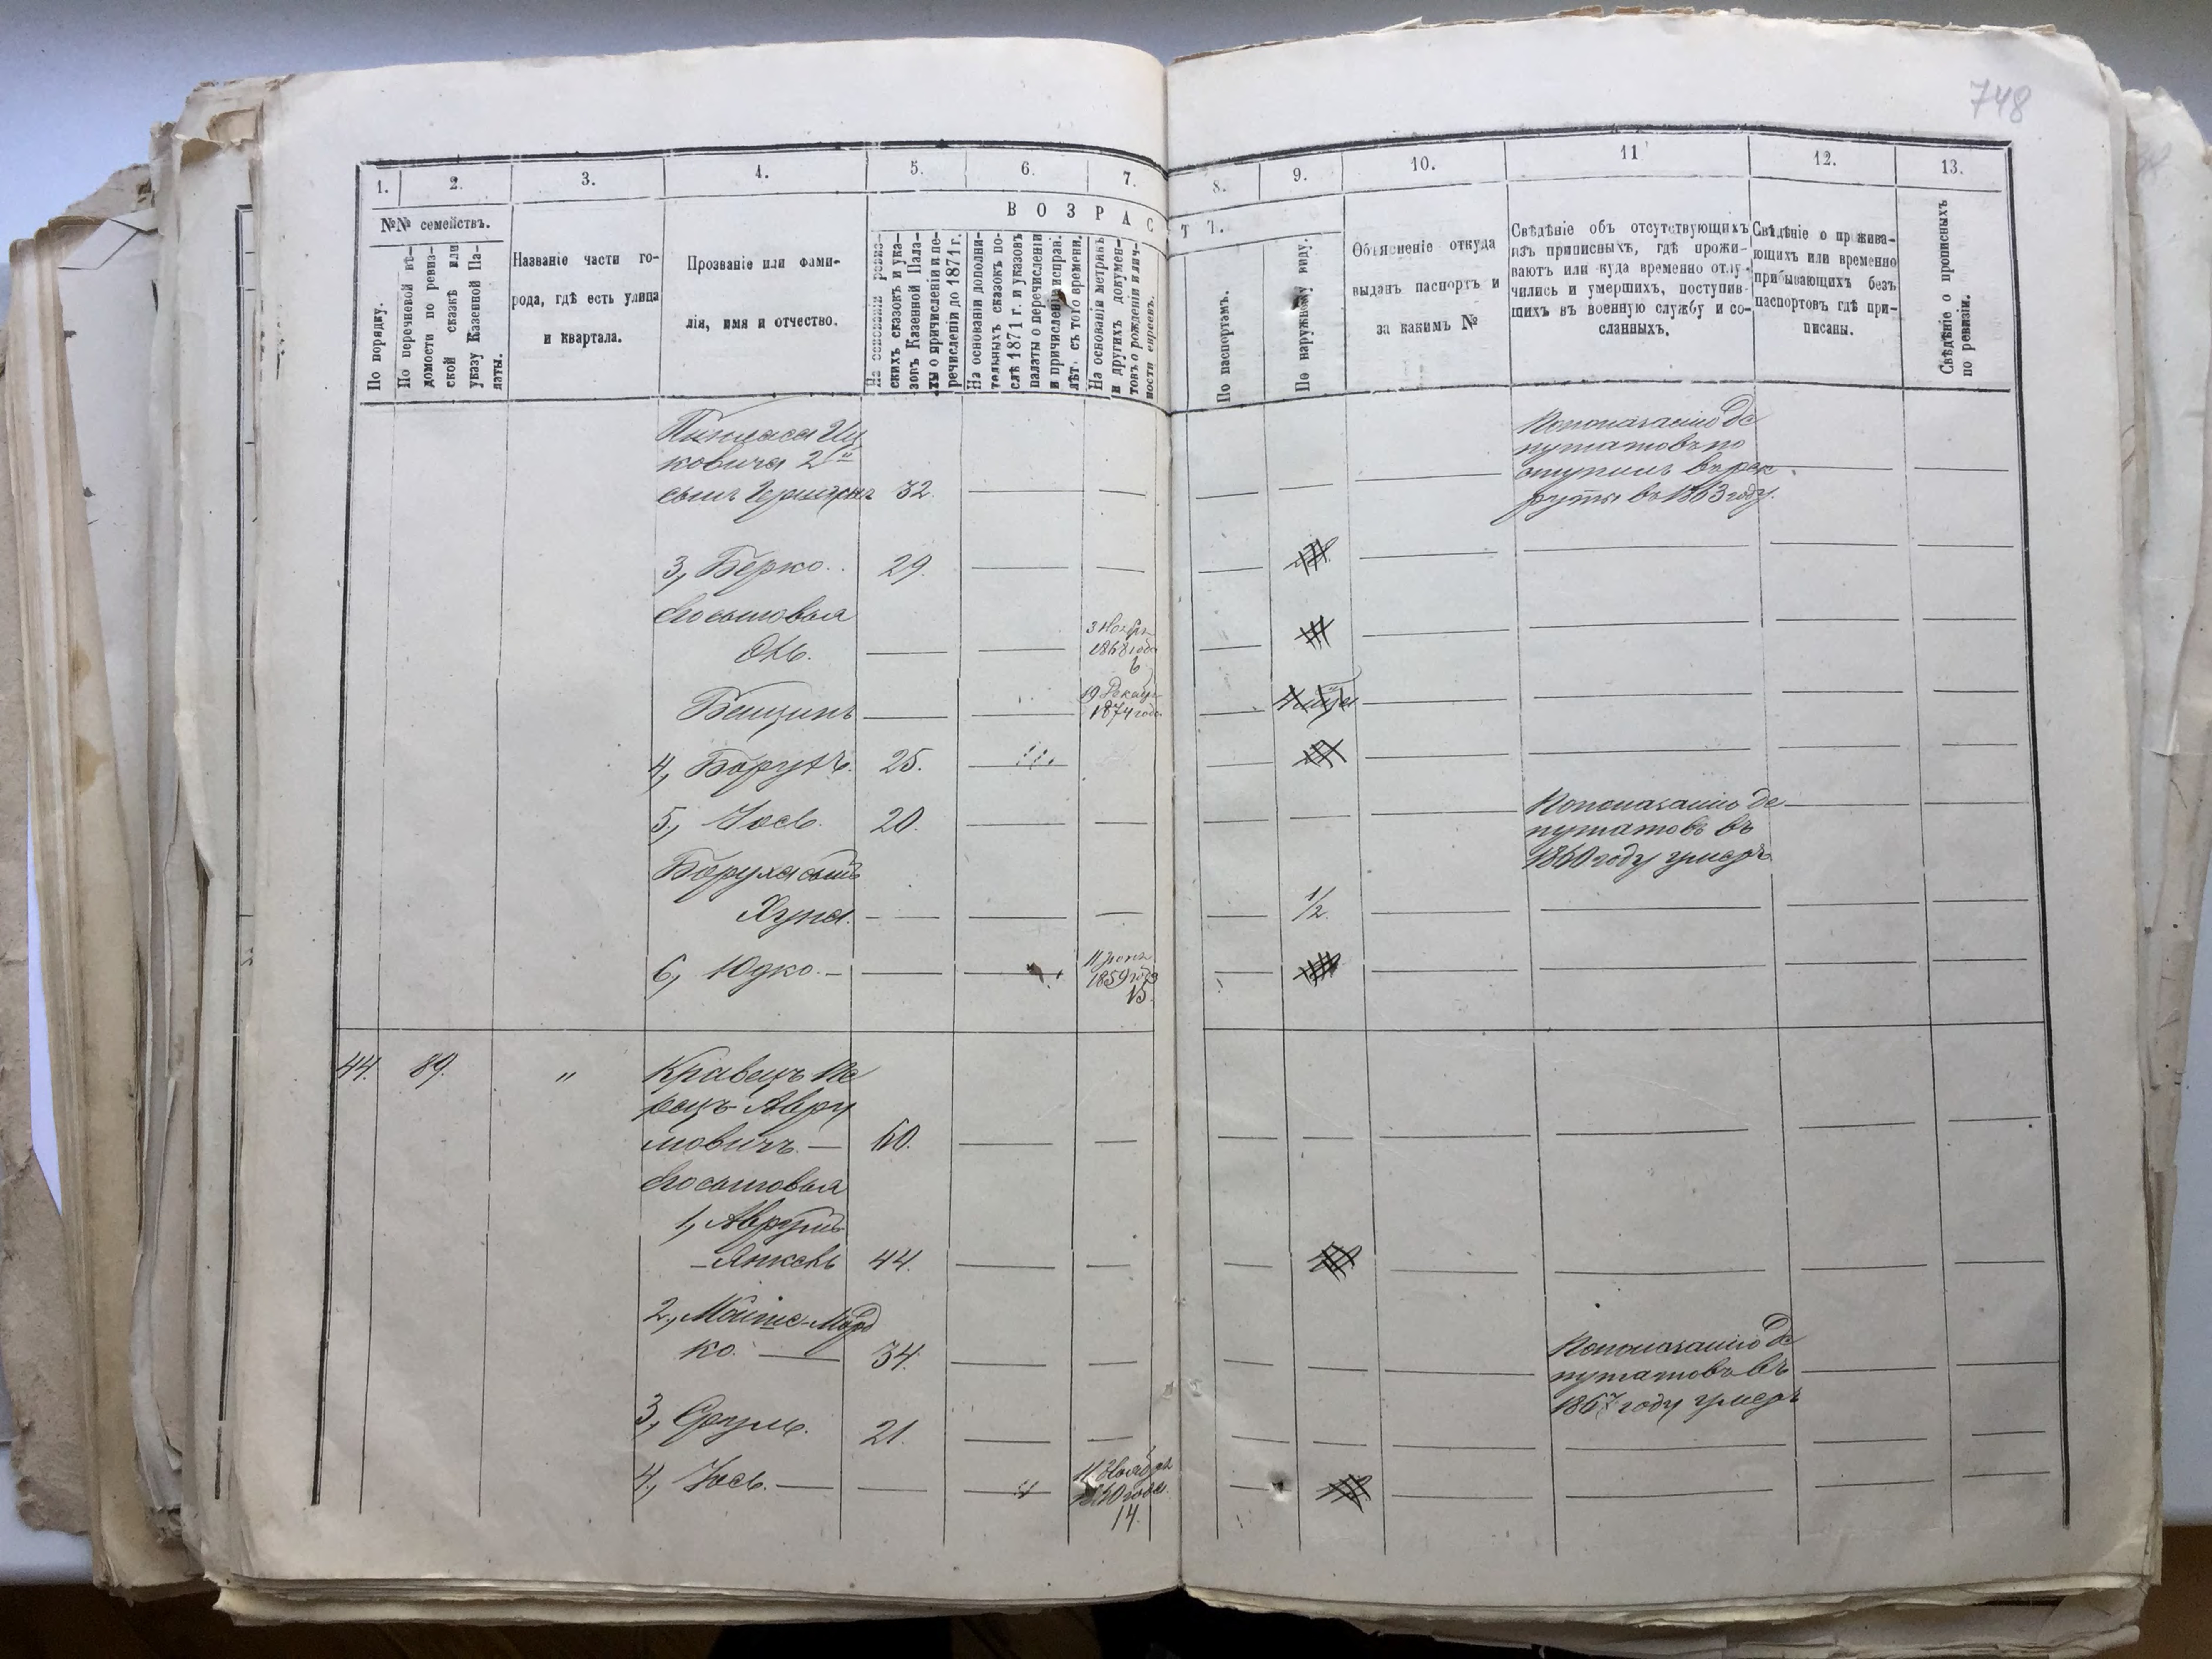 748
1. 2. 3. 4. 5. 6. 7. 8. 9. 10. 11 12. 13.
№№ семействъ.
По порядку.
По перечневой вѣ-
домости по ревиз-
ской сказкѣ или
указу Казенной Па-
латы.
Названіе части го-
рода, гдѣ есть улица
и квартала.
Прозваніе или фами-
лія, имя и отчество.
ВОЗРАСТЪ.
На основаніи ревиз-
скихъ сказокъ и ука-
зовъ Казенной Пала-
ты о причисленіи и пе-
речисленіи до 1871 г.
На основаніи дополни-
тельныхъ сказокъ по-
слѣ 1871 г. и указовъ
палаты о перечисленіи
и причисленіи исправ.
лѣтъ съ того времени.
На основаніи метрикъ
и другихъ докумен-
товъ о рожденіи и лич-
ности евреевъ.
По паспортамъ.
По наружному виду.
Объясненіе откуда
выданъ паспортъ и
за какимъ №
Свѣдѣніе объ отсутствующихъ
изъ приписныхъ, гдѣ прожи-
ваютъ или куда временно отлу-
чились и умершихъ, поступив-
шихъ въ военную службу и со-
сланныхъ.
Свѣдѣніе о прожива-
ющихъ или временно
прибывающихъ безъ
паспортовъ гдѣ при-
писаны.
Свѣдѣніе о прописныхъ
по ревизіи.
Пинкаса Иц
ковича 2й
сынъ 32.
По показанію де
путатовъ по
ступилъ въ рек
руты въ 1863 году.
3, Берко. 29.
Его сыновья
3 Ноября
1868 года
6
19 Декаб.
1874 года
Бенцинъ
4, Борухъ. 25.
5, Іось. 20.
По показанію де
путатовъ въ
1860 году умеръ
Боруха сынъ
Хуна. 1/2.
6, Юдко.
1859 года
15.
44. 89. " Кравецъ Пе
рецъ Авру
мовичъ. 60.
Его сыновья
1, Аврумъ
-Янкель 44.
2, Мойше-Морд
ко. 34.
По показанію де
путатовъ въ
1867 году умеръ
3, Сруль. 21.
4, Іось.
11 Ноября
1860 года.
14.